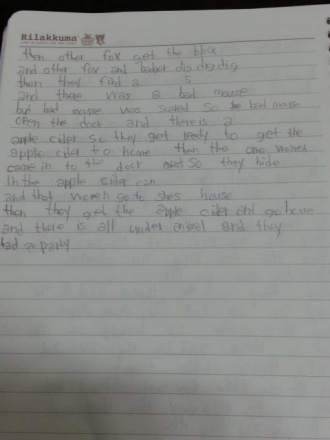 Rilakkuma
then other fox get the
and other fox and badger dig dig dig
then they find a 5
and there was a bad mouse
but bad mouse was scared so bad mouse
open the dock and there is a
apple cider so they get ready to get the
apple cider to home then the one women
came in to the dock and so they hide
in the apple cider can
and that women go to shes house
then they get the apple cider and go home
and there is all under and they
had a party